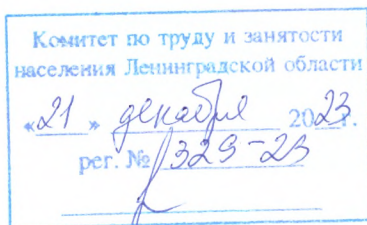 Комитет по труду и занятости
населения Ленинградской области
«21» декабря 2023г.
рег. № 329-23